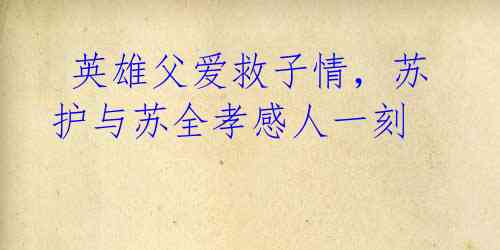 英雄父爱救子情，苏
护与苏全孝感人一刻